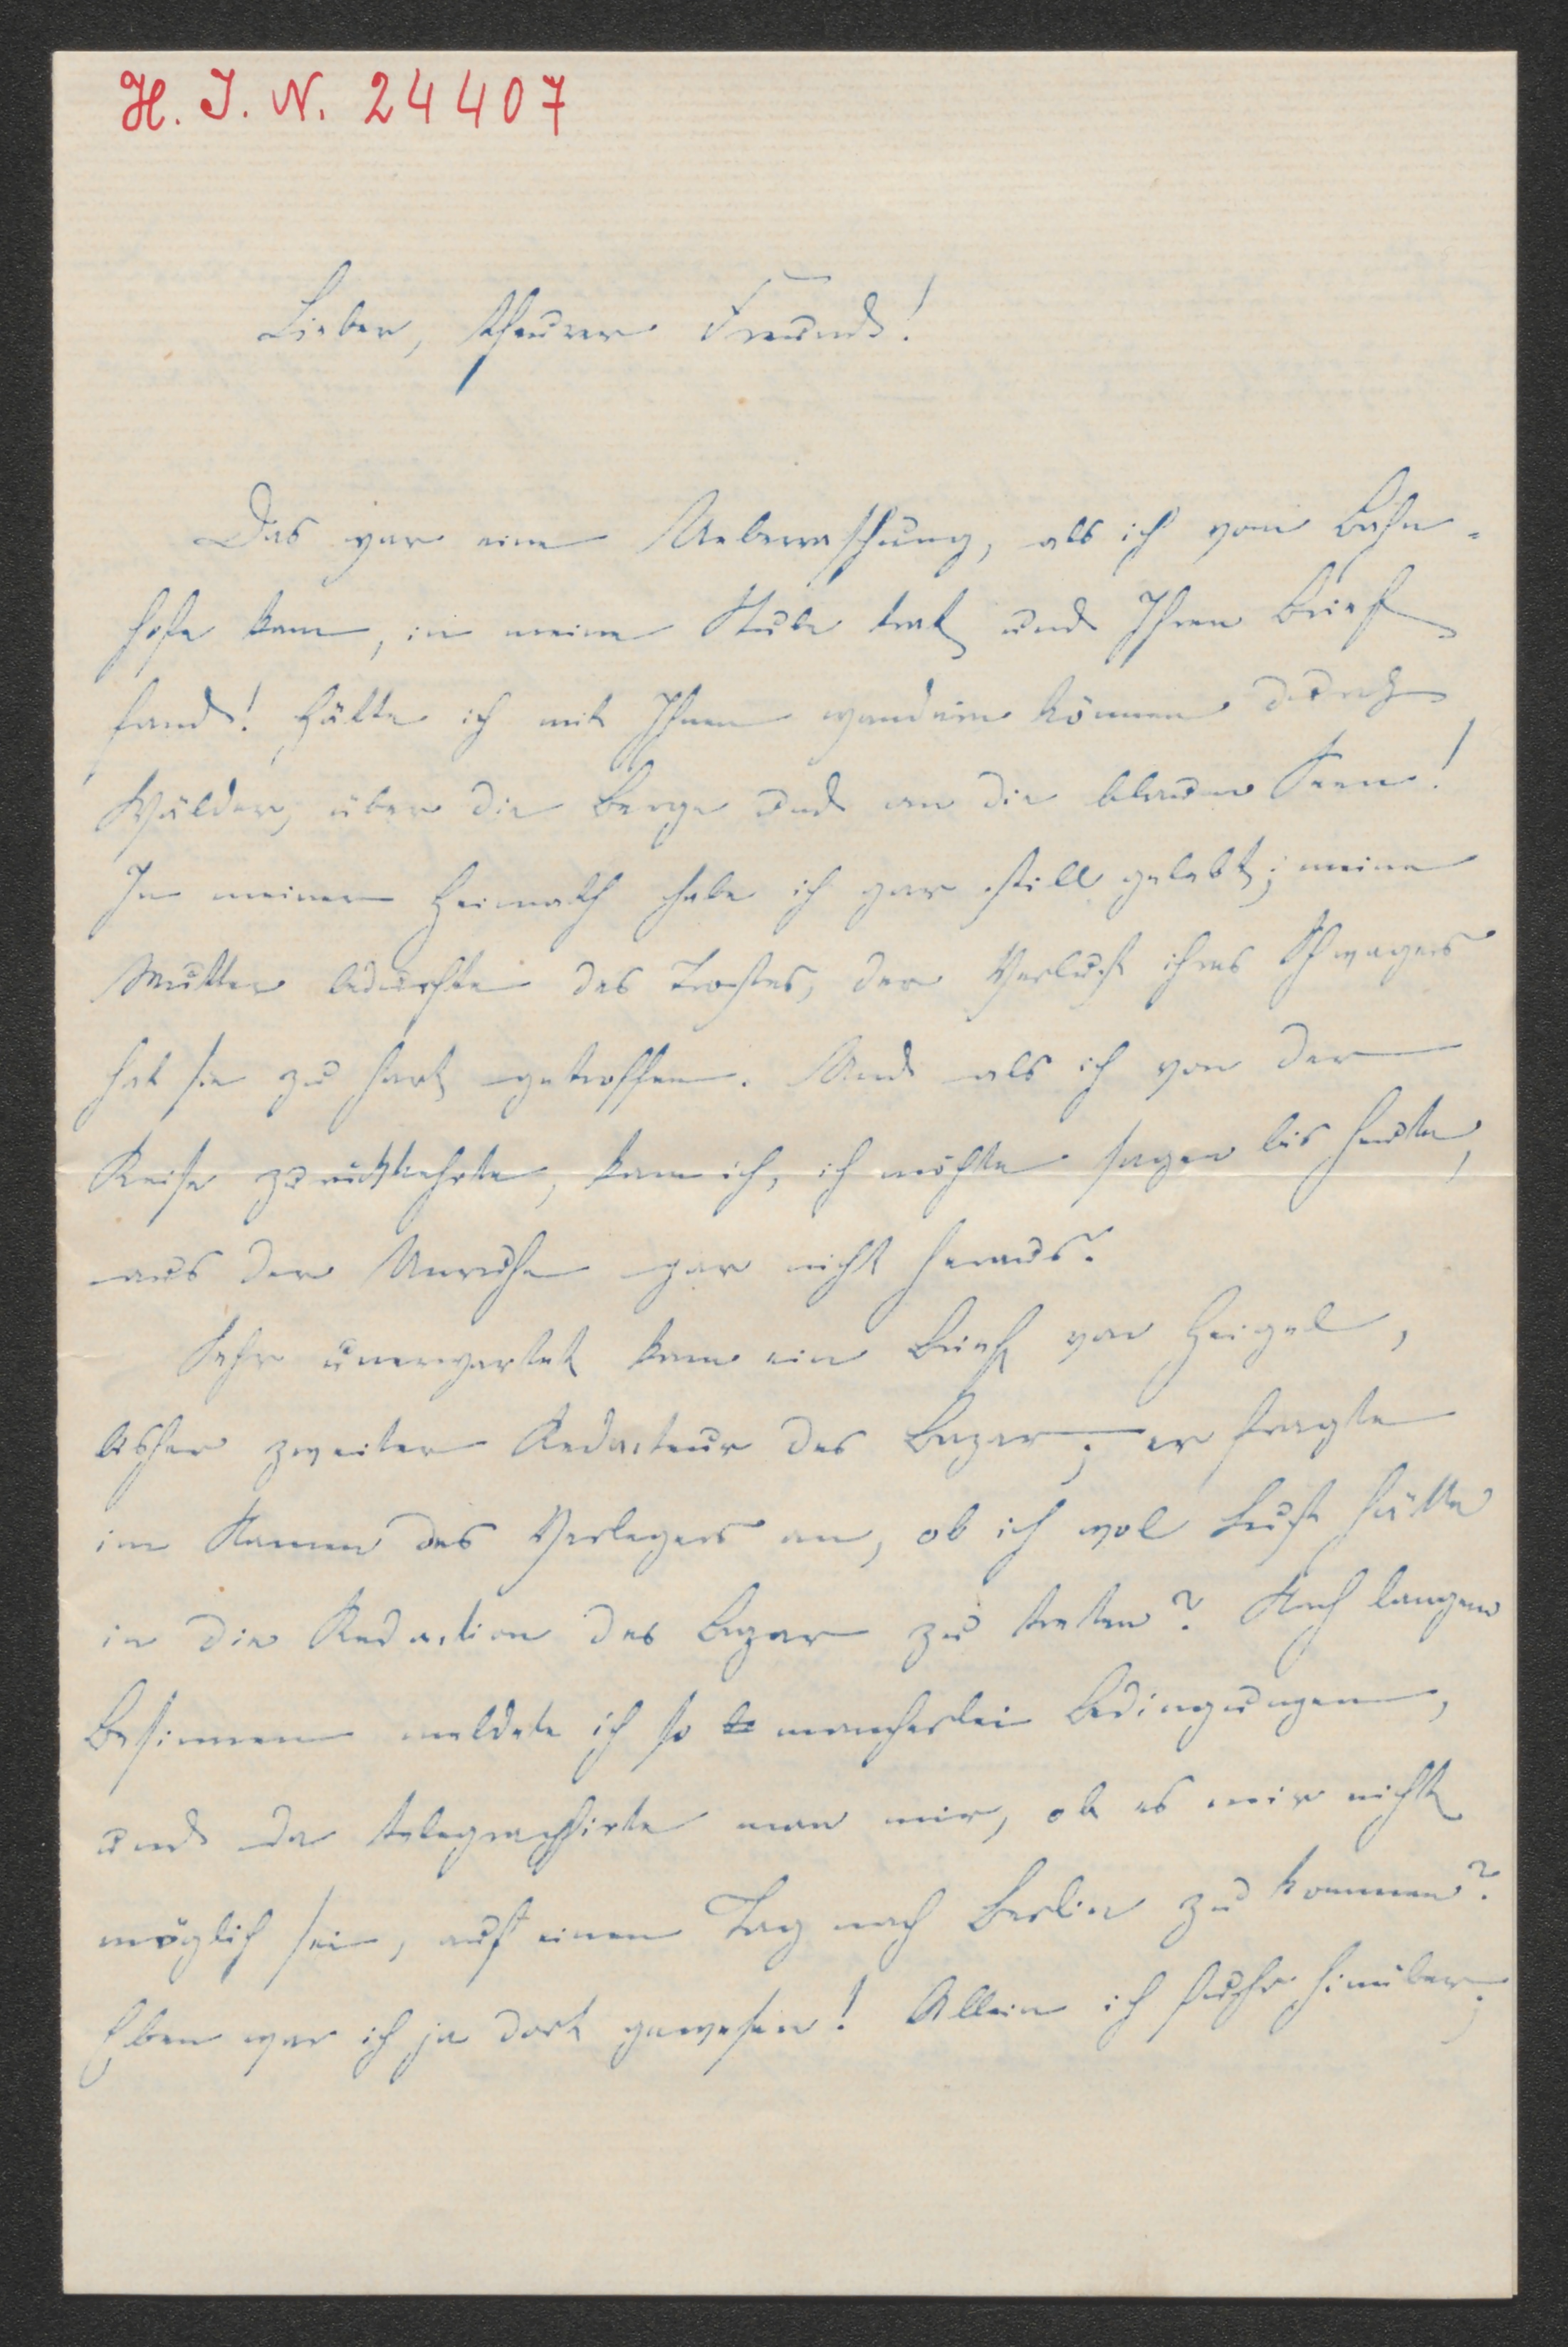 H. I. N. 24407
Lieber, theurer Freund!
Das war eine Ueberraschung, als ich vom Bahn-
hofe kam, in meine Stube trat und Ihren Brief
fand! Hätte ich mit Ihnen wandern können durch
Wälder, über die Berge und an die blauen Seen!
In meiner Heimath habe ich gar still gelebt; meine
Mutter bedurfte des Trostes, der Verlust ihres Schwagers
hat sie zu hart getroffen. Und als ich von der
Reise zurückkehrte, kam ich, ich möchte sagen bis heute,
aus der Unruhe gar nicht heraus.
Sehr unerwartet kam ein Brief von Heigel,
bisher zweiter Redacteur des Bazar; er fragte
im Namen des Verlegers an, ob ich wol Lust hätte
in die Redaction des Bazar zu treten? Nach langem
Besinnen meldete ich so mancherlei Bedingungen,
und da telegraphirte man mir, ob es mir nicht
möglich sei, auf einen Tag nach Berlin zu kommen?
Eben war ich ja dort gewesen! Allein ich fuhr hinüber;